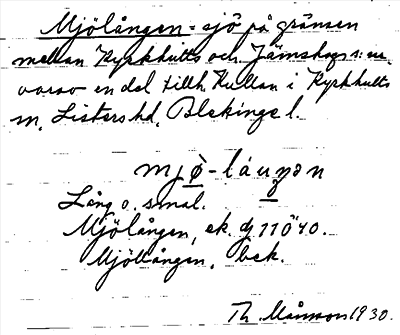 Mjölången - sjö på gränsen
mellan Kyrkhults och Jämshogs s:nr
varav en del tillh. Kullan i Kyrkhults
sn, Listers hd, Blekinge l.
mjö̀-láuŋən
Lång o. smal.
Mjölången, ek. dj 11 Ö 40.
Mjöllången, bek.
Th. Månsson 1930.